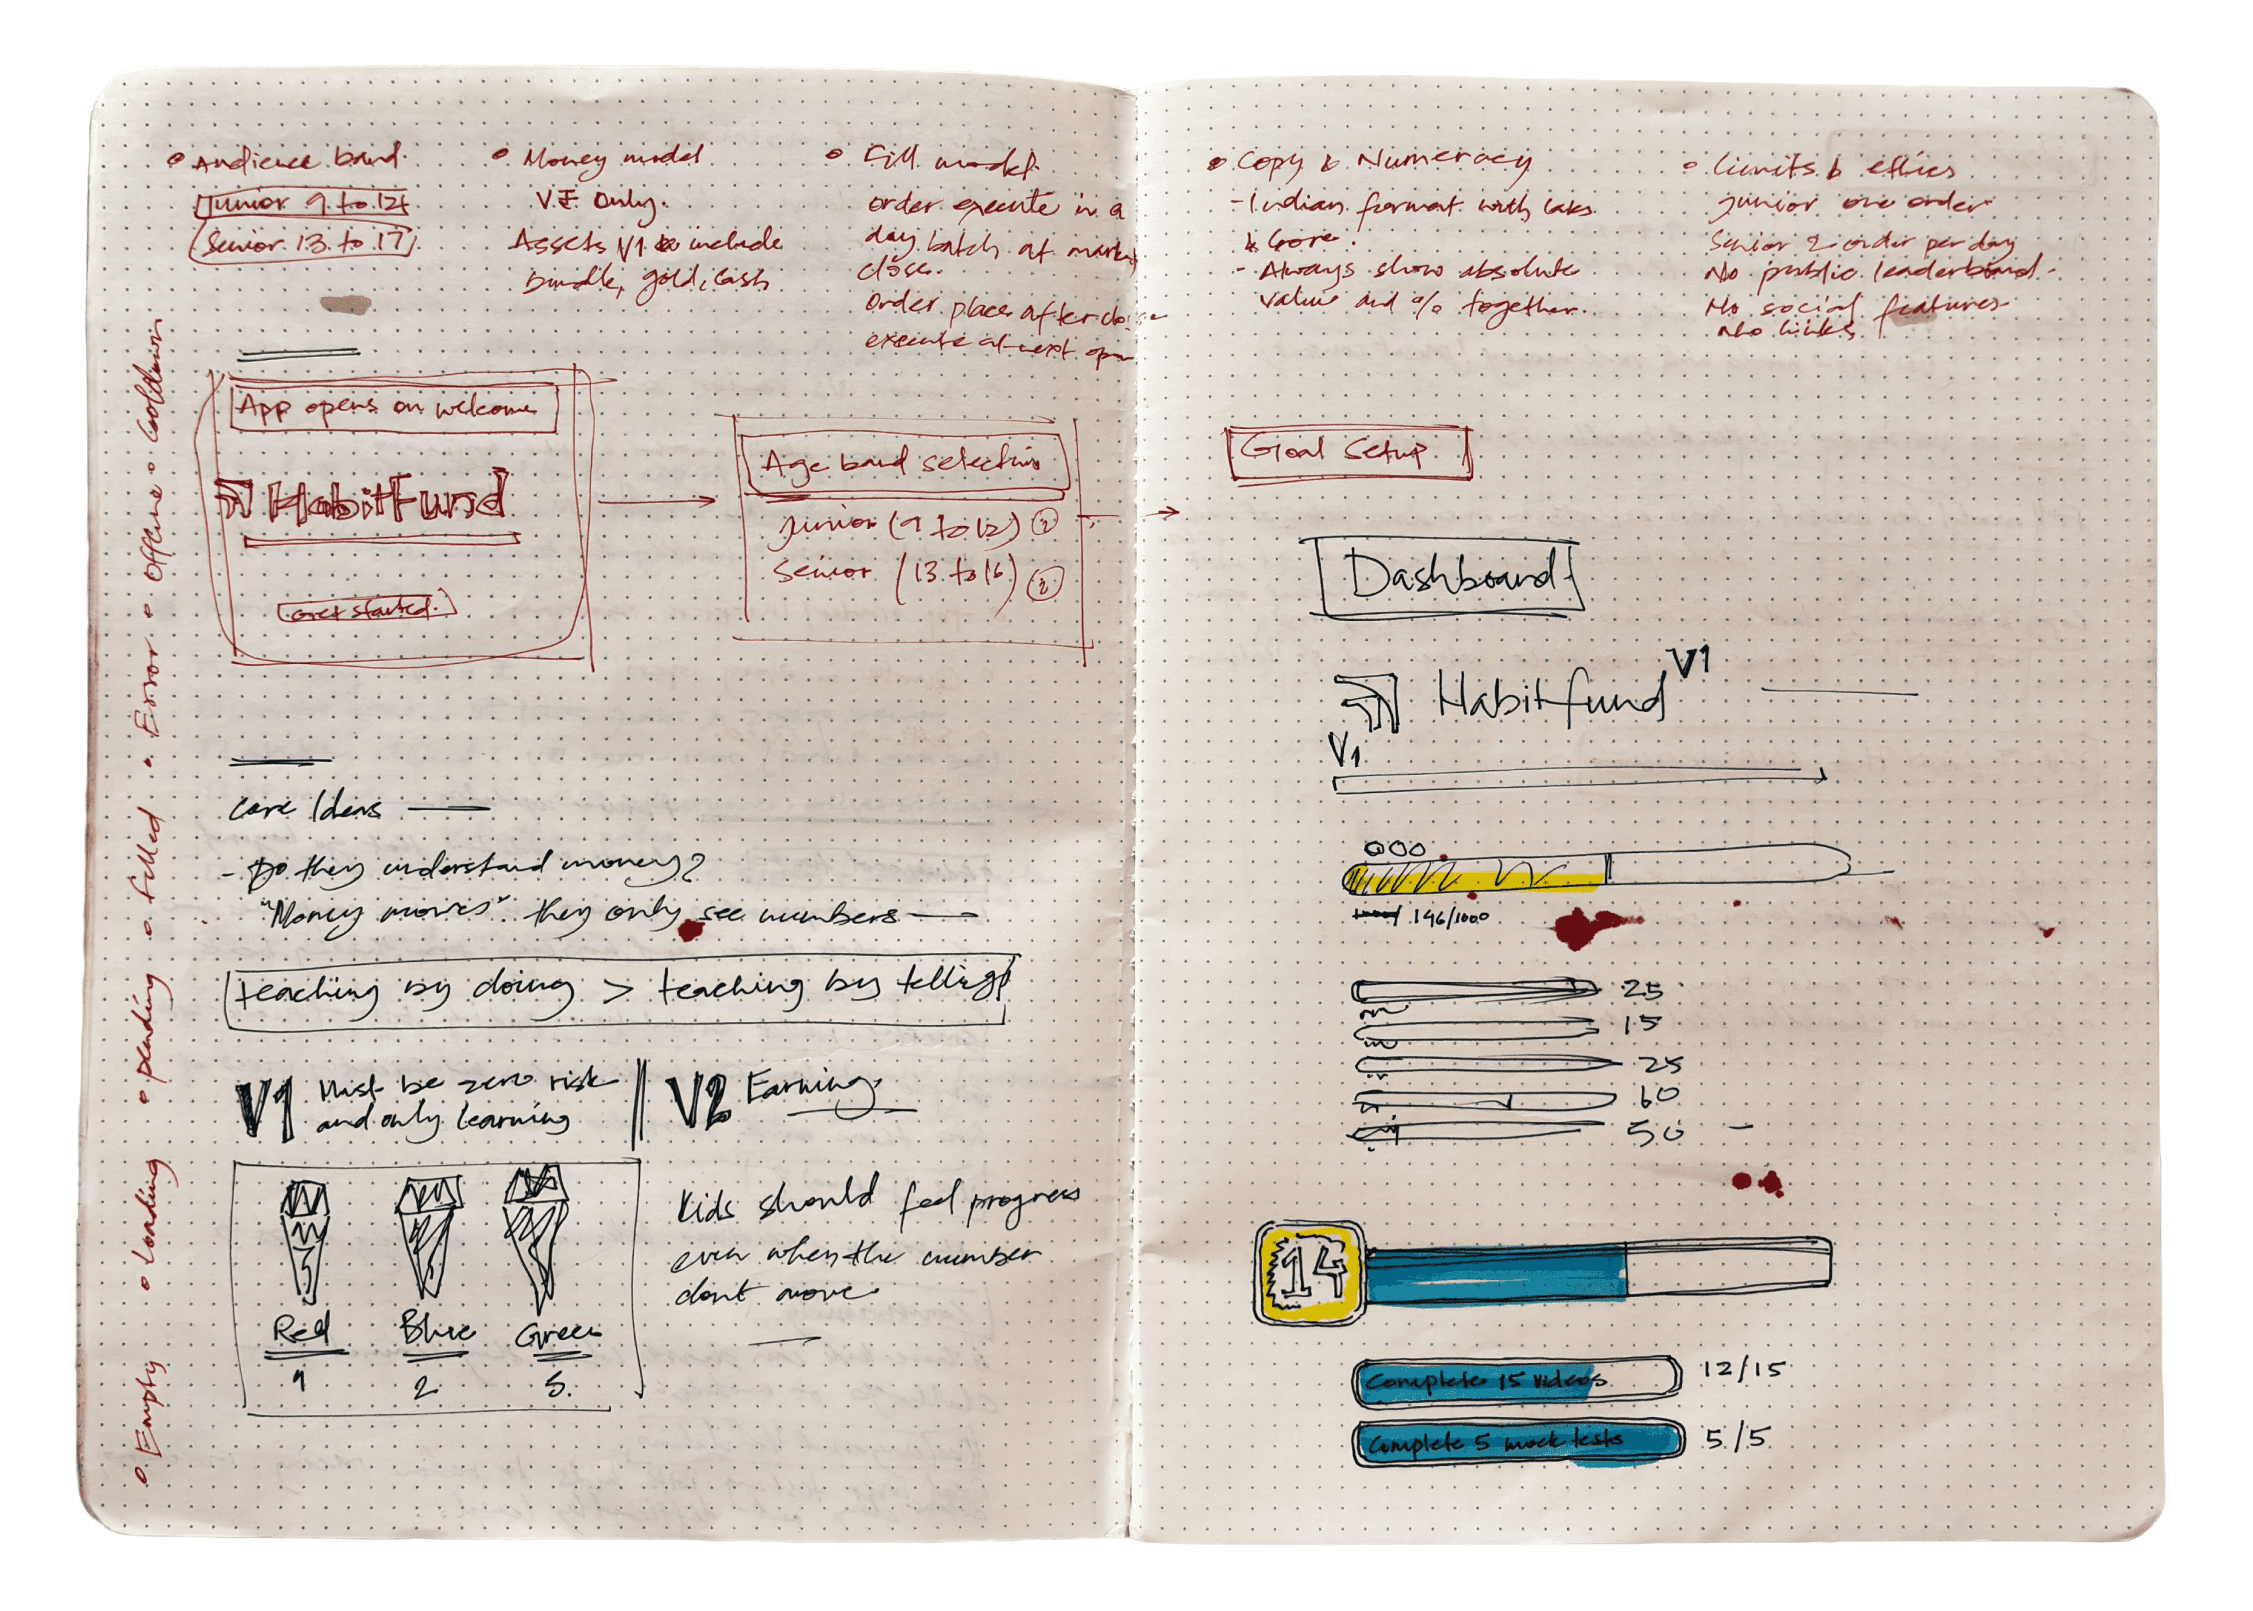 Audience band
Junior 9 to 12
Senior 13 to 17
Money model
V.₹ only.
Assets V1 to include
bundle, gold, cash
Fill model
order execute in a
day batch at market
close.
Order place after close
execute at next open
Copy & Numeracy
- Indian format with laks
& Crore.
- Always show absolute
value and % together.
Limits & ethics
junior one order
Senior 2 order per day
No public leaderboard
No social features
No links
Empty
Loading
pending
filled
Error
Offline
Cooldown
App opens on welcome
HabitFund
Get started
Age band selection
junior (9 to 12)
Senior (13 to 16)
Goal Setup
Core Ideas
- Do they understand money?
"Money moves". they only see numbers
teaching by doing > teaching by telling
V1 Must be zero risk
and only learning
V2 Earning
Red
Blue
Green
2
5.
Kids should feel progress
even when the number
dont move.
Dashboard
Habitfund V1
V1
146/1000
25
15
25
60
50
14
Complete 15 videos
12/15
Complete 5 mock tests
5/5